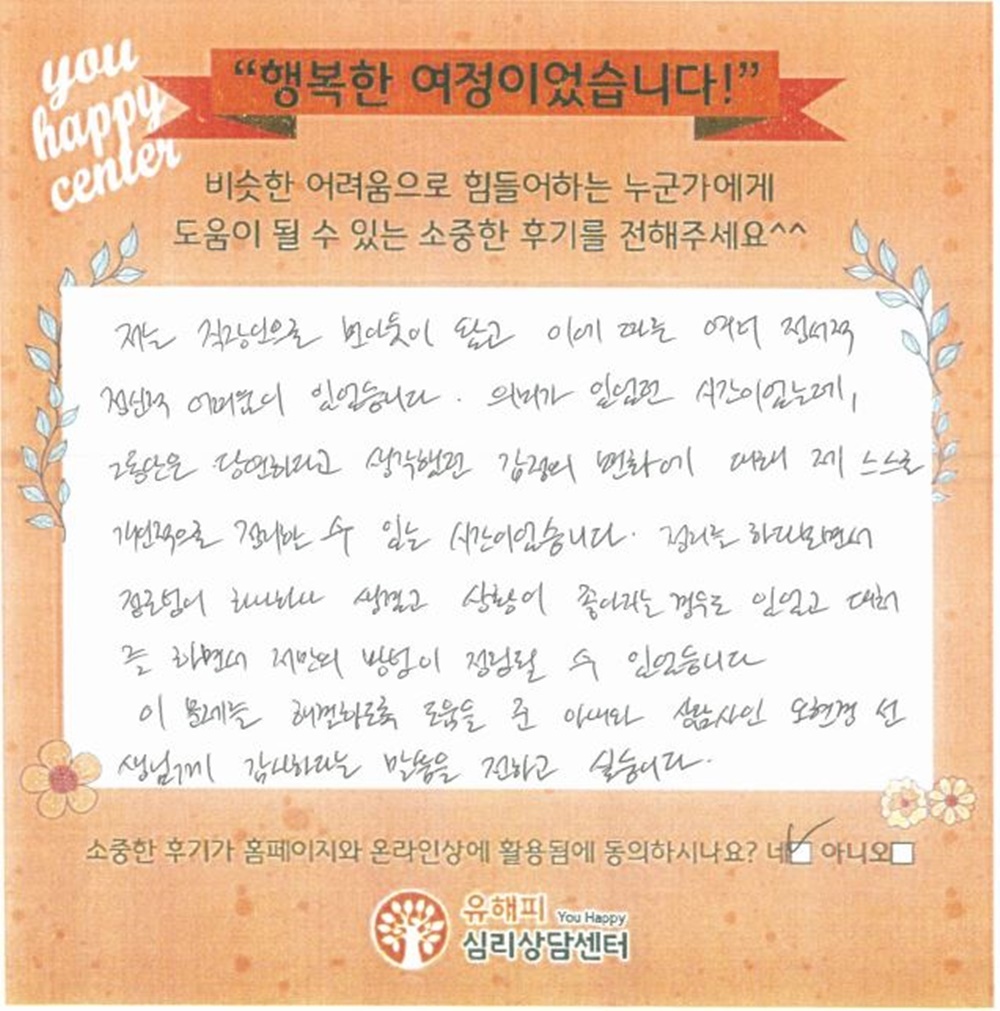 you
happy
center
“행복한 여정이었습니다!”
비슷한 어려움으로 힘들어하는 누군가에게
도움이 될 수 있는 소중한 후기를 전해주세요^^
저는 직장인으로 번아웃이 왔고 이에 따른 여러 정서적
정신적 어려움이 있었습니다. 의미가 있었던 시간이었는데,
그동안은 당연하다고 생각했던 감정의 변화에 대해 제 스스로
객관적으로 정리할 수 있는 시간이었습니다. 정리를 하다보면서
하나하나 생겼고 상황이 좋아지는 경우도 있었고 대화
를 하면서 저만의 방법이 정립될 수 있었습니다
이 문제를 해결하도록 도움을 준 아내와 상담사인 오현경 선
생님께 감사하다는 말씀을 전하고 싶습니다.
소중한 후기가 홈페이지와 온라인상에 활용됨에 동의하시나요? 네 아니오
유해피 You Happy
심리상담센터